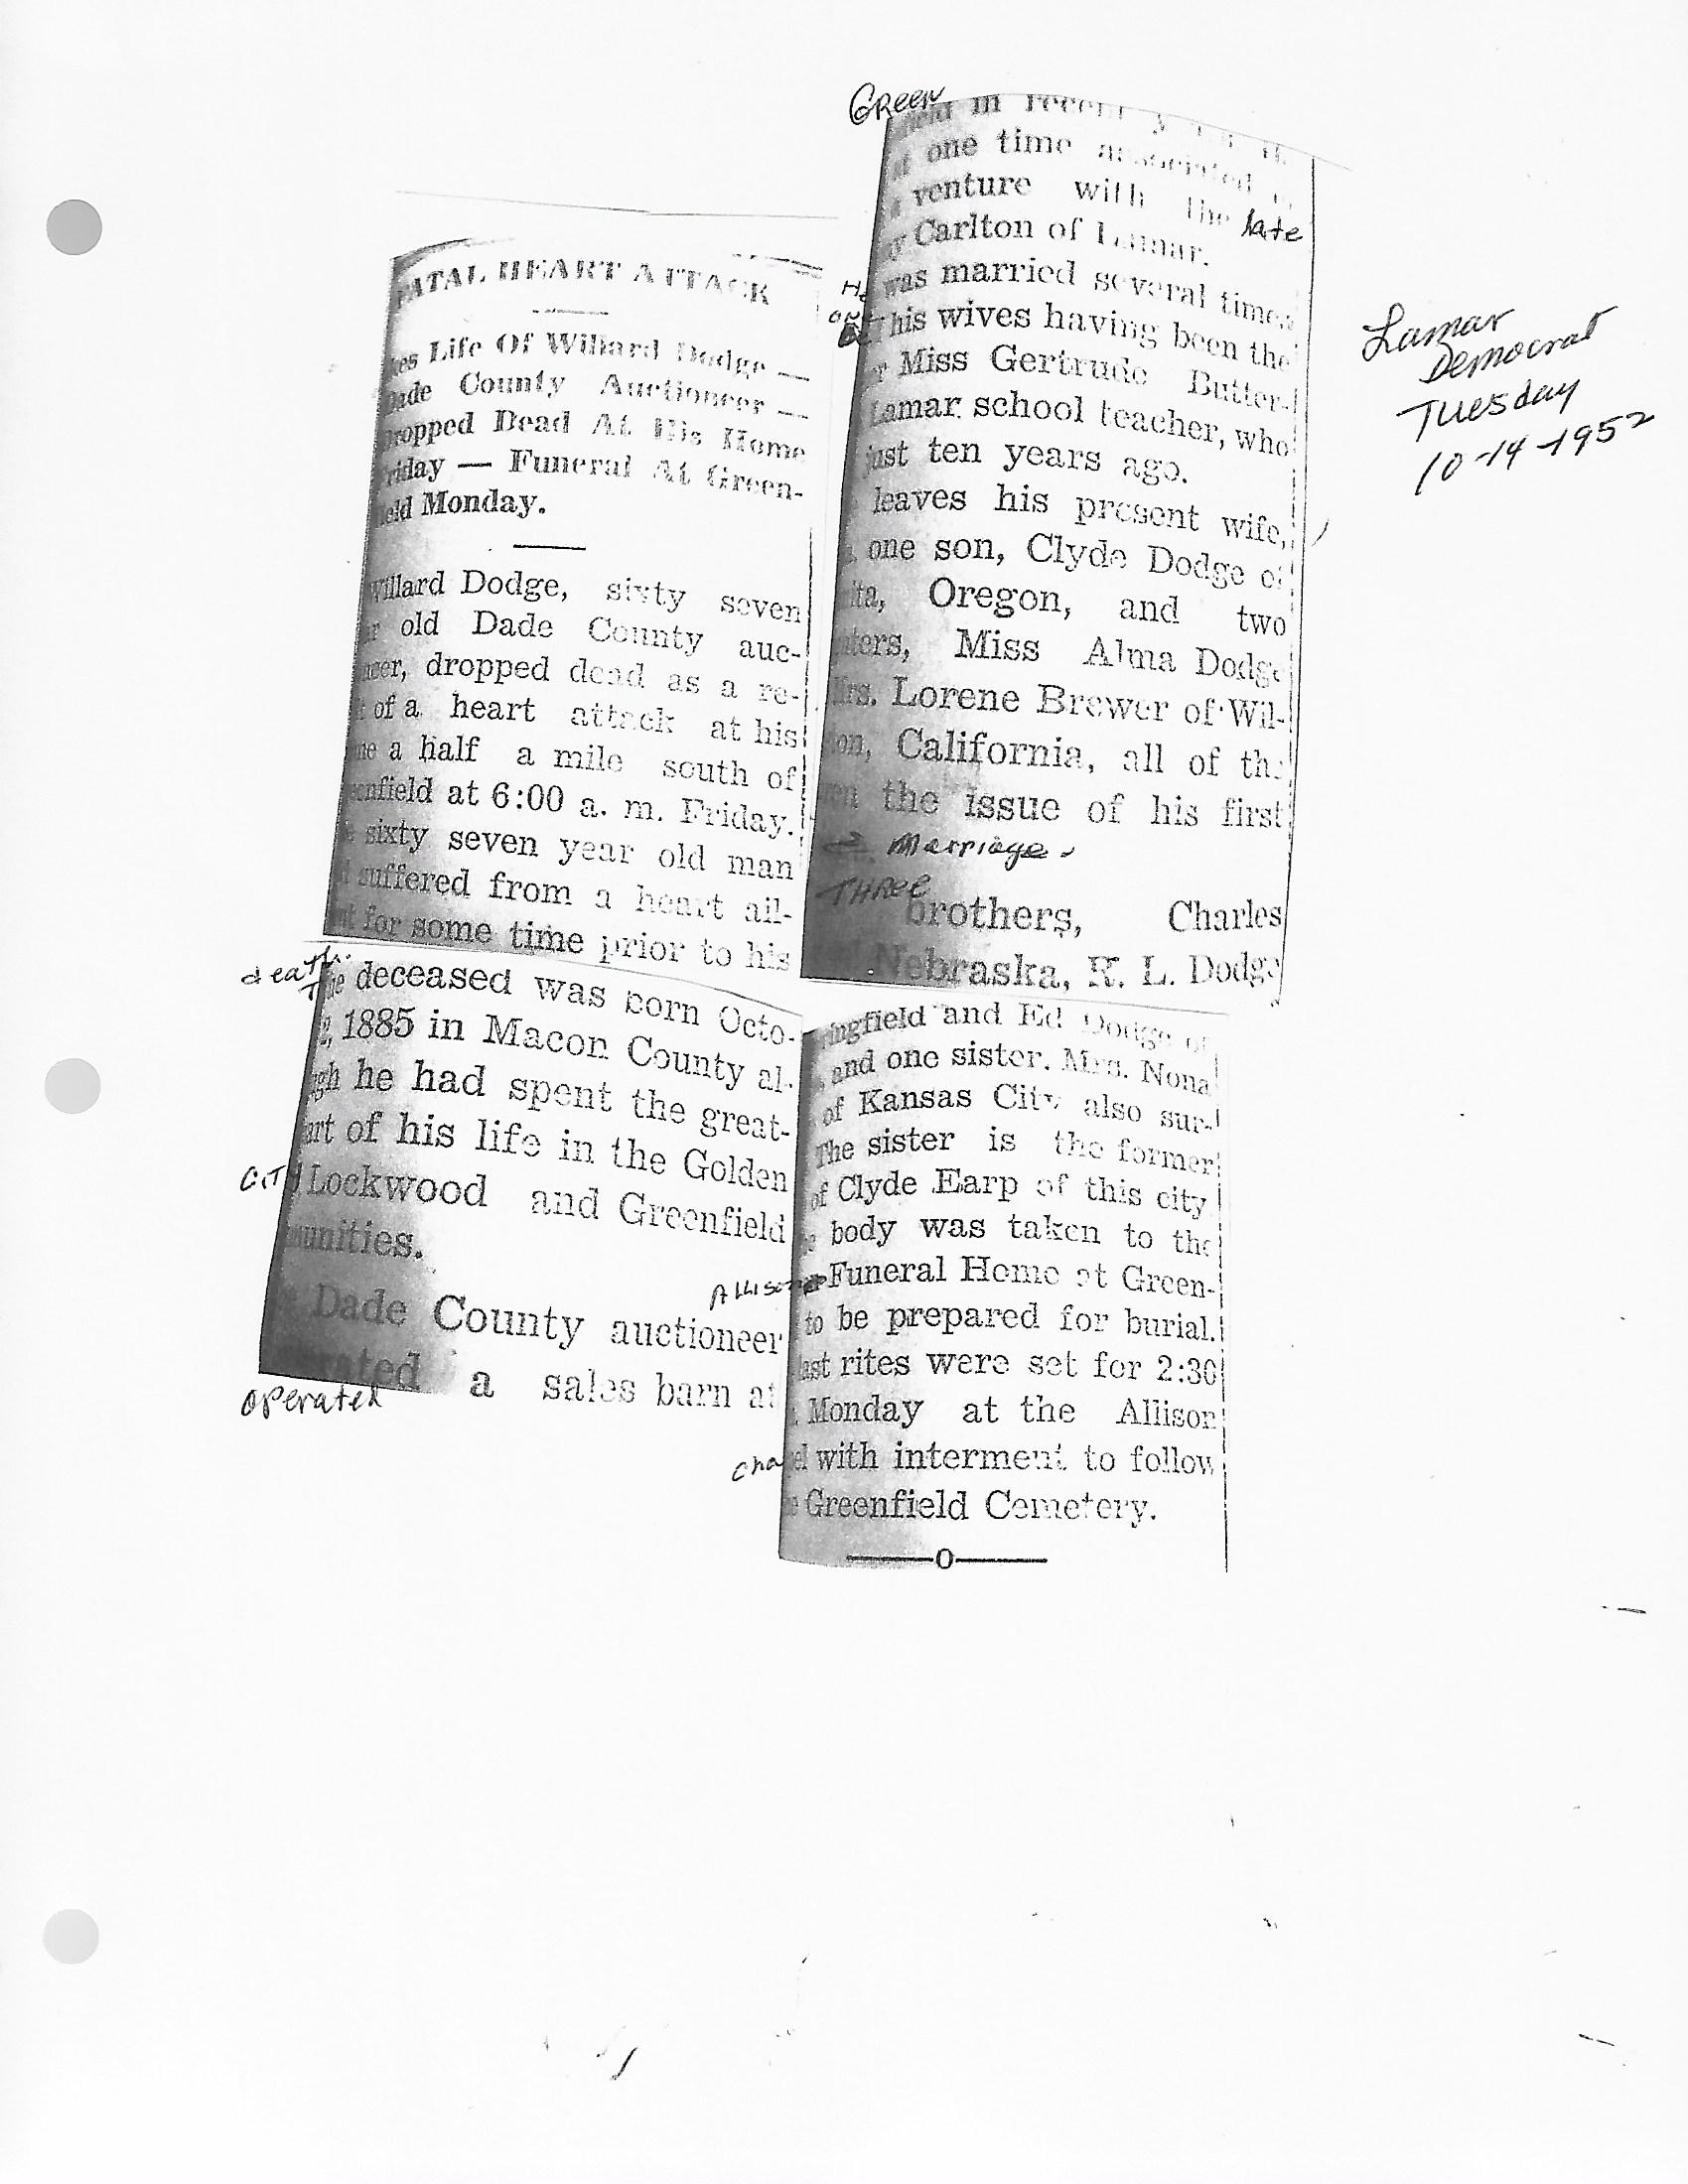 FATAL HEART ATTACK
Life Of Willard Dodge —
Dade County Auctioneer —
Dropped Dead At His Home
Friday — Funeral At Green-
ield Monday.
Willard Dodge, sixty seven
old Dade County auc-
dropped dead as a re-
of a heart attack at his
a half a mile south of
enfield at 6:00 a. m. Friday.
sixty seven year old man
suffered from a heart ail-
for some time prior to his
death.
The deceased was born Octo-
1885 in Macon County al-
he had spent the great-
art of his life in the Golden
City Lockwood and Greenfield
munities.
Dade County auctioneer
operated a sales barn at
Green
field in recent
one time associated
venture with the late
Carlton of Lamar.
He was married several times
one his wives having been the
Miss Gertrude Butter-
Lamar school teacher, who
just ten years ago.
leaves his present wife,
one son, Clyde Dodge of
Oregon, and two
Miss Alma Dodge
Mrs. Lorene Brewer of Wil-
California, all of the
the issue of his first
marriage.
THREE
brothers, Charles
Nebraska, R. L. Dodge
ringfield and Ed Dodge of
and one sister. Mrs. Nona
of Kansas City also sur-
The sister is the former
of Clyde Earp of this city
body was taken to the
Allison Funeral Home at Green-
to be prepared for burial.
last rites were set for 2:30
Monday at the Allison
chapel with interment to follow
Greenfield Cemetery.
O
Lamar
Democrat
Tuesday
10-14-1952